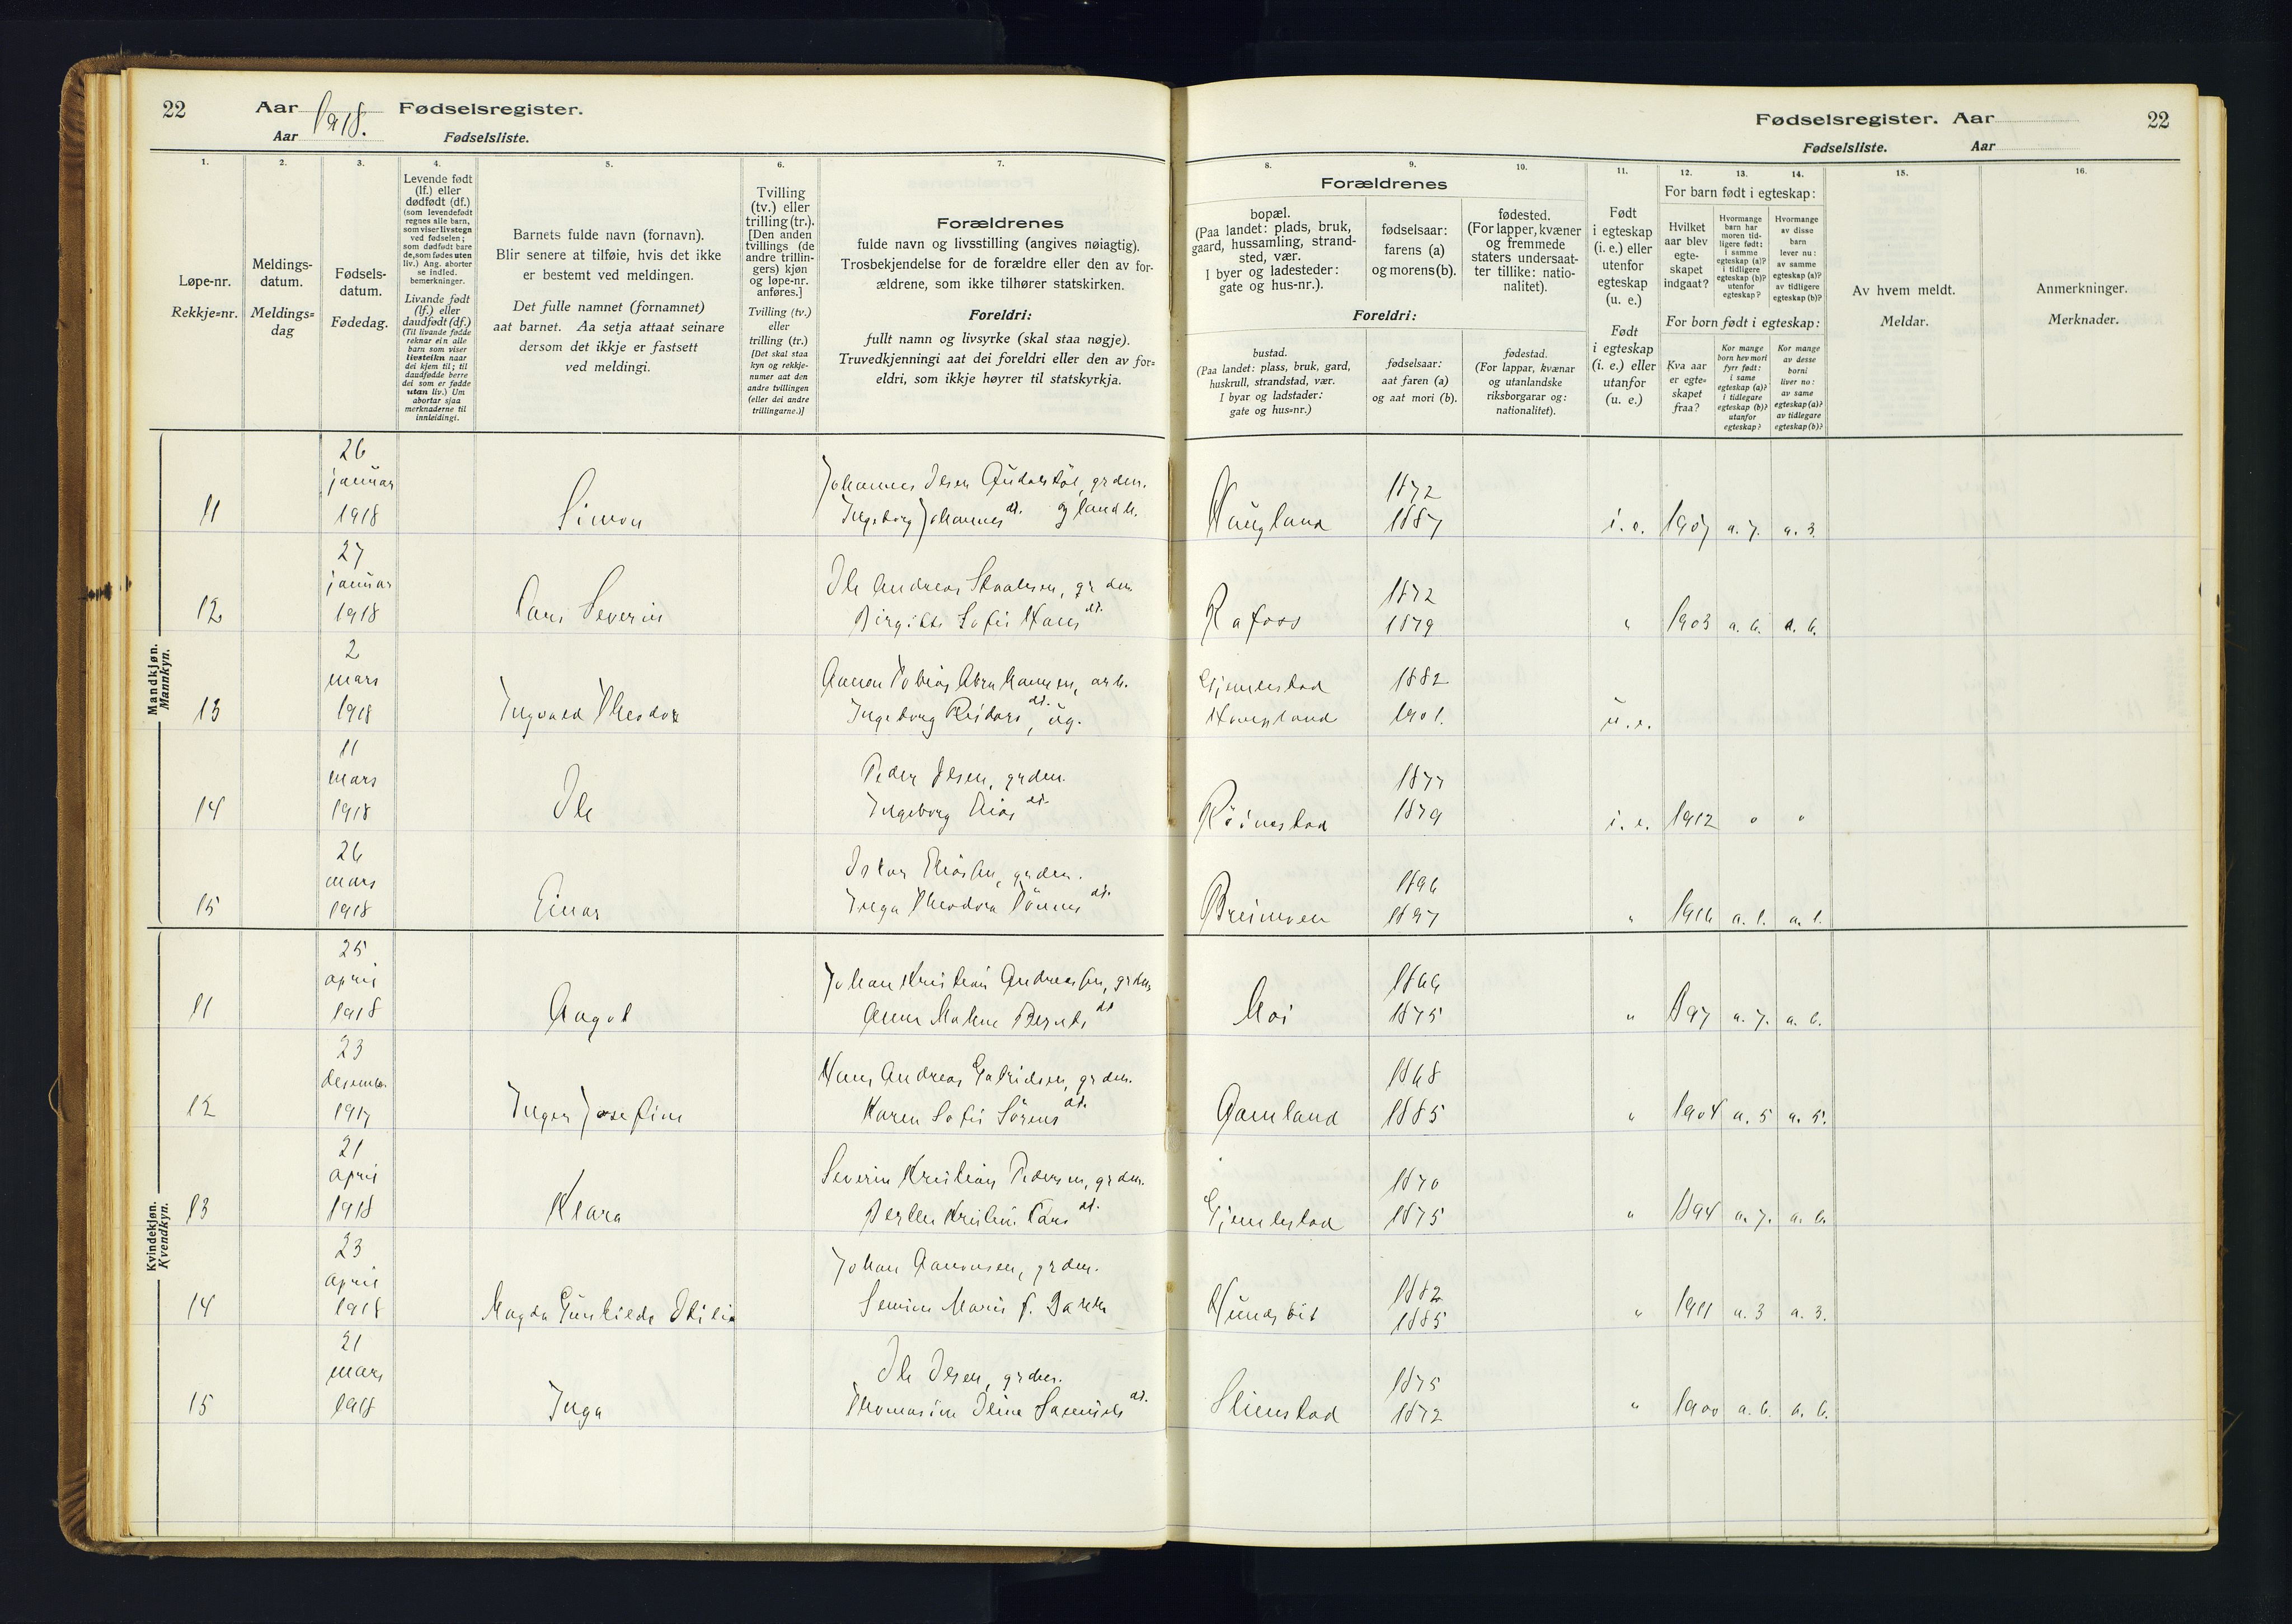 22 Aar 1918. Fødselsregister.
Aar Fødselsliste.
Fødselsregister. Aar 22
Fødselsliste. Aar
1. 2. 3. 4. 5. 6. 7.
8. 9. 10. 11. 12. 13. 14. 15. 16.
Løpe-nr.
Rekkje=nr.
Meldings-
datum.
Meldings=
dag
Fødsels-
datum.
Fødedag.
Levende født
(lf.) eller
dødfødt (df.)
(som levendefødt
regnes alle barn,
som viser livstegn
ved fødselen;
som dødfødt bare
de, som fødes uten
liv.) Ang. aborter
se indled.
bemerkninger.
Livande født
(lf.) eller
daudfødt (df.)
(Til livande fødde
reknar ein alle
barn som viser
livsteikn naar
dei kjem til; til
daudfødde berre
dei som er fødde
utan liv.) Um
abortar sjaa
merknaderne til
innleidingi.
Barnets fulde navn (fornavn).
Blir senere at tilføie, hvis det ikke
er bestemt ved meldingen.
Det fulle namnet (fornamnet)
aat barnet. Aa setja attaat seinare
dersom det ikkje er fastsett
ved meldingi.
Tvilling
(tv.) eller
trilling (tr.).
[Den anden
tvillings (de
andre trillin-
gers) kjøn
og løpe-nr.
anføres.]
Tvilling (tv.)
eller
trilling (tr.)
[Det skal staa
kyn og rekkje-
numer aat den
andre tvillingen
(eller dei andre
trillingarne.)]
Forældrenes
fulde navn og livsstilling (angives nøiagtig).
Trosbekjendelse for de forældre eller den av for-
ældrene, som ikke tilhører statskirken.
Foreldri:
fullt namn og livsyrke (skal staa nøgje).
Truvedkjenningi aat dei foreldri eller den av for=
eldri, som ikkje høyrer til statskyrkja.
Forældrenes
bopæl.
(Paa landet: plads, bruk,
gaard, hussamling, strand-
sted, vær.
I byer og ladesteder:
gate og hus-nr.).
fødselsaar:
farens (a)
og morens (b).
fødested.
(For lapper, kvæner
og fremmede
staters undersaat-
ter tillike: natio-
nalitet).
Foreldri:
bustad.
(Paa landet: plass, bruk, gard,
huskrull, strandstad, vær.
I byar og ladstader:
gate og hus=nr.)
fødselsaar:
aat faren (a)
og aat mori (b).
fødestad.
(For lappar, kvænar
og utanlandske
riksborgarar og:
nationalitet).
Født
i egteskap
(i. e.) eller
utenfor
egteskap
(u. e.)
Født
i egteskap
(i. e.) eller
utanfor
(u. e.)
For barn født i egteskap:
Hvilket
aar blev
egte-
skapet
indgaat?
Hvormange
barn har
moren tid-
ligere født:
i samme
egteskap (a)?
i tidligere
egteskap (b)?
utenfor
egteskap?
Hvormange
av disse
barn
lever nu:
av samme
egteskap (a)?
av tidligere
egteskap (b)?
For born født i egteskap:
Kva aar
er egte=
skapet
fraa?
Kor mange
born hev mori
fyrr født:
i same
egteskap (a)?
i tidlegare
egteskap (b)?
utanfor
egteskap?
Kor mange
av desse
borni
liver no:
av same
egteskap (a)?
av tidlegare
egteskap (b)?
Av hvem meldt.
Meldar.
Anmerkninger.
Merknader.
Mandkjøn.
Mannkyn.
26
januar
11 1918 Simon
Johannes Olsen, grdm.
Ingeborg Johannes dt. og landh.
Haugland 1872 1887 i. e. 1907 a. 7. a. 3.
27
januar
12 1918 Lars Severin
Ole Andreas Staalesen, grdm
Birgitte Sofie Hans dt.
Rafoss 1872 1879 " 1903 a. 6. a. 6.
2
mars
13 1918 Ingvald Theodor
Aanon Tobias Abrahamsen, arb.
Ingeborg Reidars dt., ug.
Gjemlestad 1882
Haugland 1901. u. e.
11
mars
14 1918 Ole
Peder Olsen, grdm.
Ingeborg Elias dt.
Röinestad 1877 1879 i. e. 1912 o o
26
mars
15 1918 Einar
Oskar Eliassen, grdm.
Inga Theodora Tönnes dt.
Breimoen 1896 1897 " 1916 a. 1. a. 1.
Kvindekjøn.
Kvendkyn.
25
april
11 1918 Aagot
Johan Kristian Andreassen, grdm
Anna Malene Bernts dt
Moi 1866 1875 " 1897 a. 7. a. 6.
23
desemb.
12 1917 Inger Josefine
Hans Andreas Gabrielsen, grdm.
Karen Sofie Sörens dt.
Aamland 1868 1885 " 1904 a. 5 a. 5.
21
april
13 1918 Klara
Severin Kristian Pedersen, grdm.
Berthe Kristine Lars dt.
Gjemlestad 1870 1875 " 1894 a. 7. a. 6.
23
april
14 1918 Magda Gunhilde Otilie
Johan Aanonsen, grdm.
Semine Marie f.
1882 1885 " 1911 a. 3 a. 3.
21
mars
15 1918 Inga
Ole Olsen, grdm.
Thomasine Oline dt.
Slimestad 1875 1872 " 1900 a. 6. a. 6.